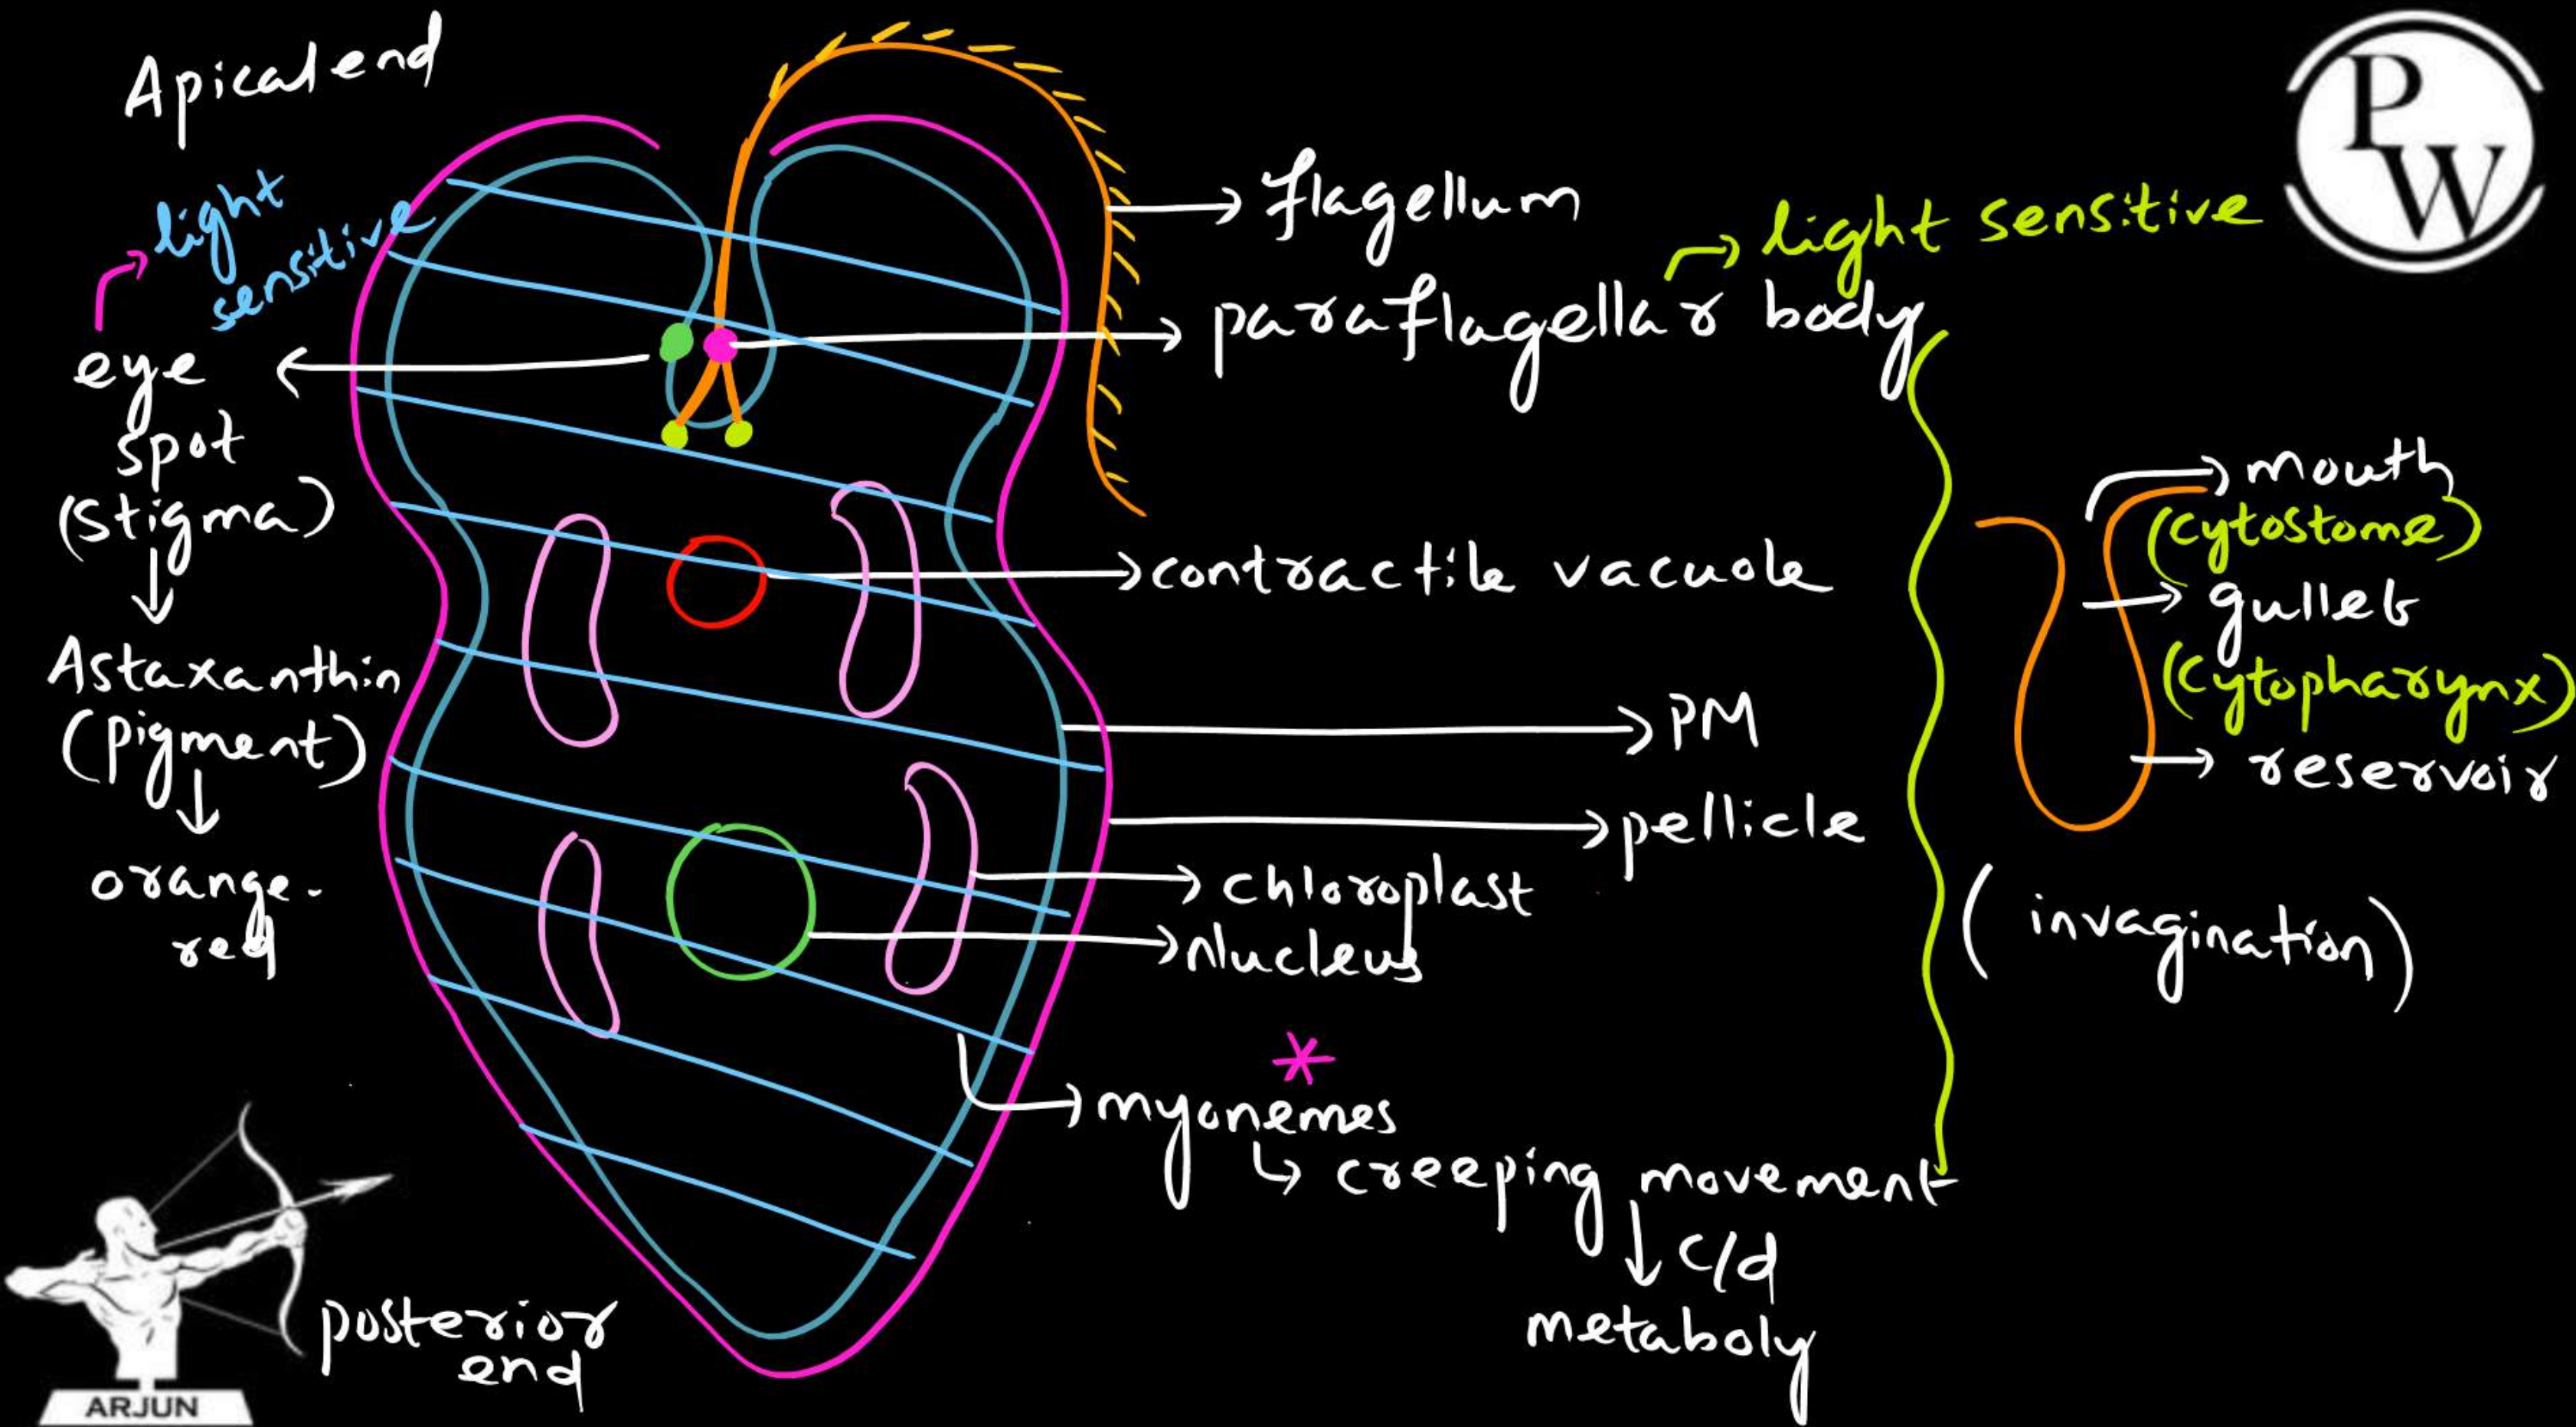 Apical end
PW
light
sensitive
eye
spot
(stigma)
Astaxanthin
(pigment)
orange-
red
flagellum
light sensitive
paraflagellar body
contractile vacuole
PM
pellicle
chloroplast
Nucleus
*
myonemes
creeping movement
c/d
metaboly
mouth
(cytostome)
gullet
(cytopharynx)
reservoir
(invagination)
posterior
end
ARJUN